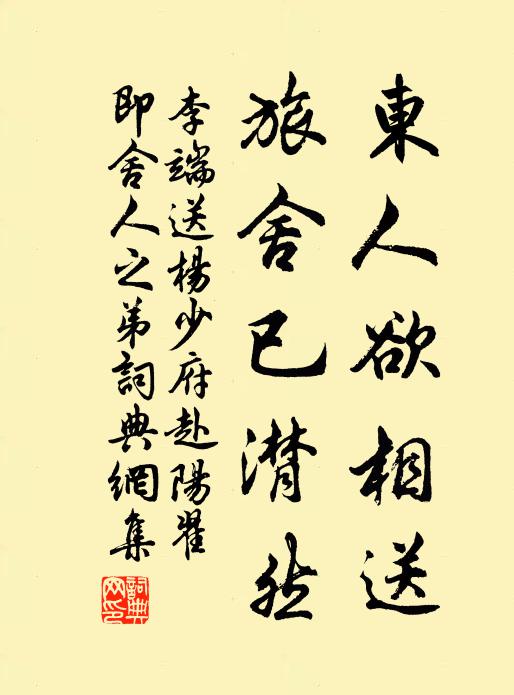 東人欲相送
旅舍已潸然
李端送楊少府赴陽翟
即舍人之弟詞典網集
詞典網印